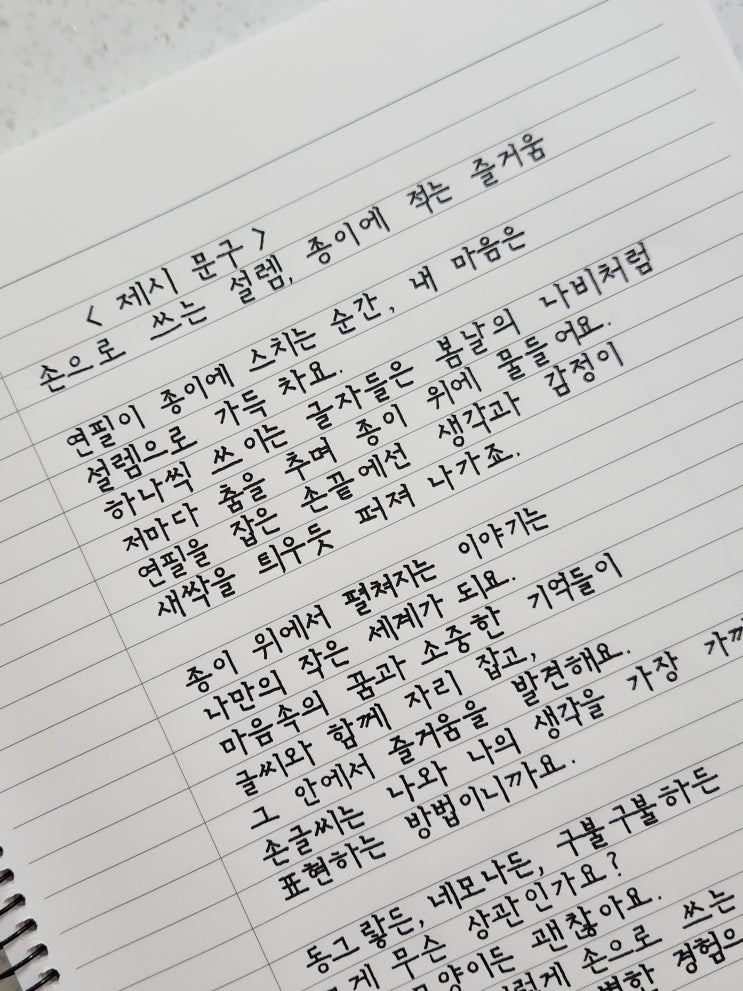 < 제시 문구 >
손으로 쓰는 설렘, 종이에 적는 즐거움
연필이 종이에 스치는 순간, 내 마음은
설렘으로 가득 차요.
하나씩 쓰이는 글자들은 봄날의 나비처럼
저마다 춤을 추며 종이 위에 물들어요.
연필을 잡은 손끝에선 생각과 감정이
새싹을 틔우듯 퍼져 나가죠.
종이 위에서 펼쳐지는 이야기는
나만의 작은 세계가 되요.
마음속의 꿈과 소중한 기억들이
글씨와 함께 자리 잡고,
그 안에서 즐거움을 발견해요.
손글씨는 나와 나의 생각을 가장
표현하는 방법이니까요.
동그랗든, 네모나든, 구불구불하든
무슨 상관인가요?
괜찮아요.
손으로 쓰는
경험으